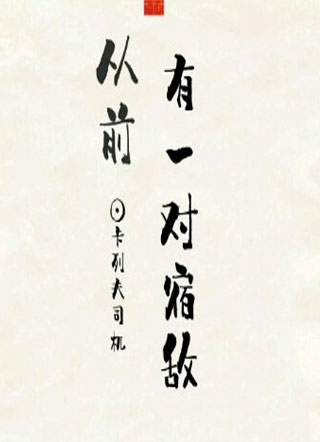 从前
有一对宿敌
⊙卡列夫司机